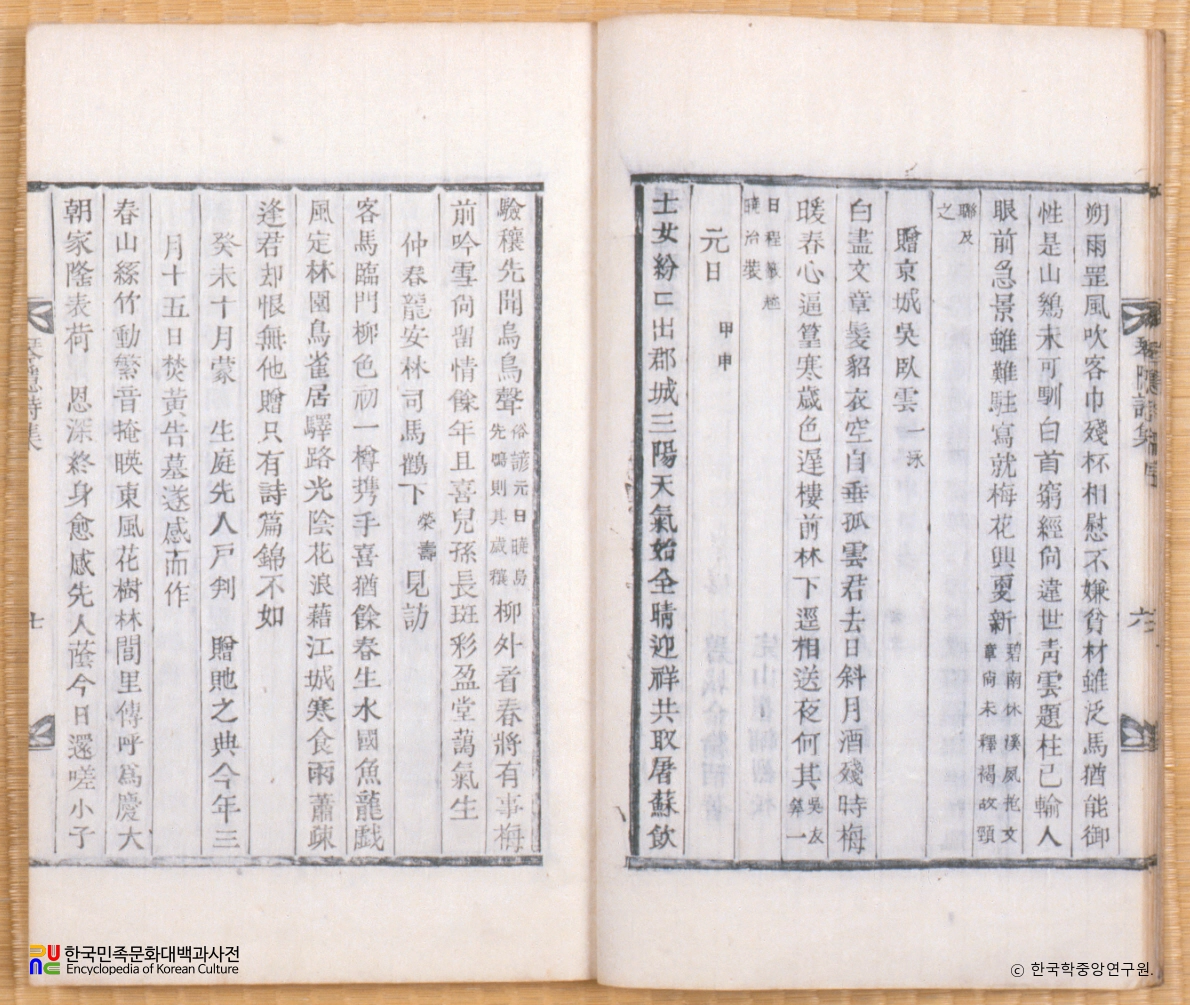 朔雨罡風吹客巾殘杯相慰不嫌貧材雖泛馬猶能御
性是山鷄未可馴白首窮經尙違世靑雲題柱已輸人
眼前急景雖難駐寫就梅花興更新碧南休溪夙抱文章尙未釋褐故頸
聯及之
贈京城吳臥雲一泳
白盡文章髮貂衣空自垂孤雲君去日斜月酒殘時梅
暖春心逼篁寒歲色遲樓前林下逕相送夜何其吳友算一
日程 曉治裝
元日 甲申
士女紛匸出郡城三陽天氣始全晴迎祥共取屠蘇飮
六
驗穰先聞烏鳥聲俗諺元日曉烏先鳴則其歲穰柳外看春將有事梅
前吟雪尙留情餘年且喜兒孫長斑彩盈堂藹氣生
仲春龍安林司馬鶴下榮壽見訪
客馬臨門柳色初一樽携手喜猶餘春生水國魚龍戱
風定林園鳥雀居驛路光陰花浪藉江城寒食雨蕭疎
逢君却恨無他贈只有詩篇錦不如
癸未十月蒙 生庭先人戶判 贈貤之典今年三
月十五日焚黃告墓遂感而作
春山絲竹動繁音掩暎東風花樹林閭里傳呼爲慶大
朝家隆表荷 恩深終身愈感先人蔭今日還嗟小子
七
한국민족문화대백과사전
Encyclopedia of Korean Culture
© 한국학중앙연구원.